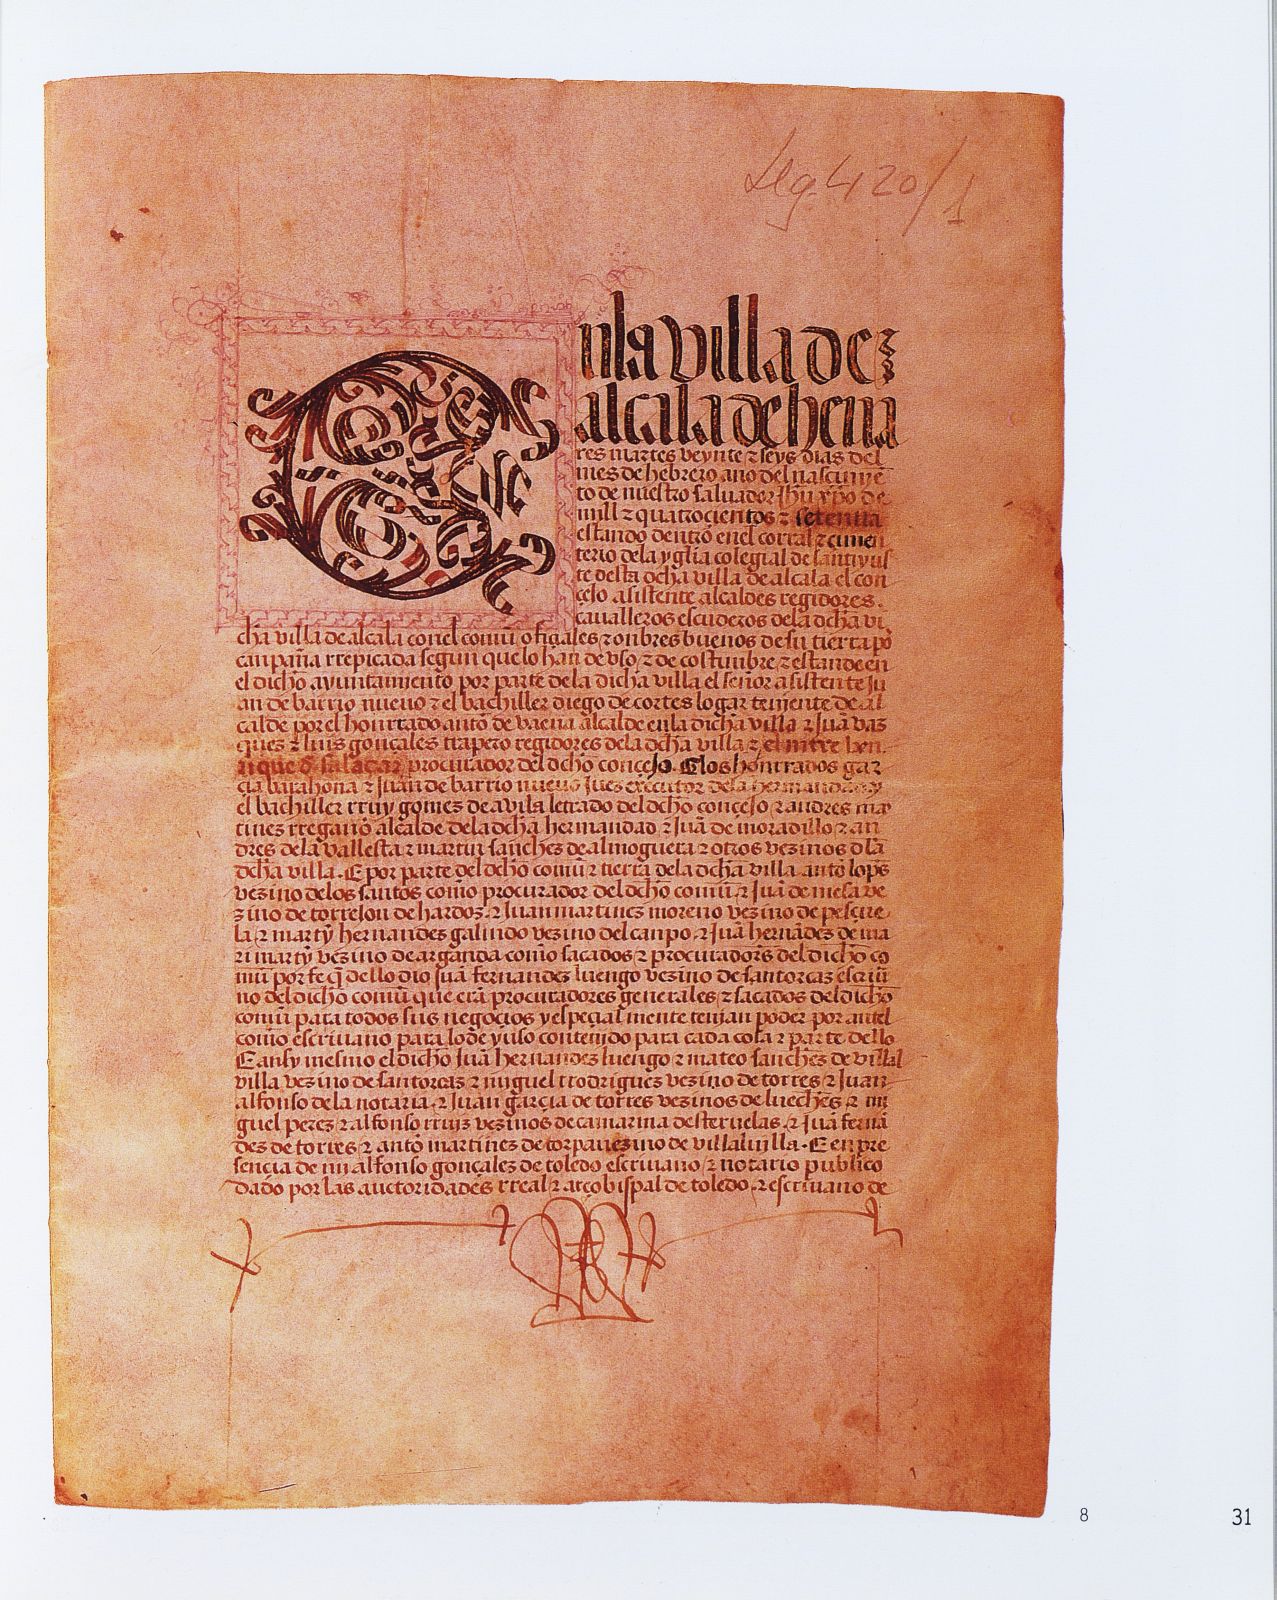 Leg. 420/1
En la villa de
alcala de hena
res martes veynte ⁊ seys dias del
mes de hebrero año del nascimiē
to de nuestro saluador ihū xpo de
mill ⁊ quatroçientos ⁊ setenta
estando dentro enel corral ⁊ çimen
terio dela yglia colegial de santiyus
te desta dcha villa de alcala el con
çejo asistente alcaldes regidores.
caualleros escuderos dela dcha vi
cha villa de alcala conel comū ofiçiales ⁊ onbres buenos de su tierra por
canpaña rrepicada segun que lo han de vso ⁊ de costunbre ⁊ estande en
el dicho ayuntamiento por parte dela dicha villa el señor asistente ju
an de barrio nueuo ⁊ el bachiller diego de cortes logar teniente de al
calde por el honrrado antō de vaena alcalde enla dicha villa ⁊ juā vas
ques ⁊ luis gonçales trapero regidores dela dcha villa ⁊ el mtre hen
rrique de salaçar procurador del dcho conçejo. E los honrrados gar
çia barahona ⁊ juan de barrio nueuo jues executor dela hermandad ⁊
el bachiller rruy gomes de auila letrado del dcho conçejo ⁊ andres mar
tines rregaño alcalde dela dcha hermandad ⁊ juā de moradillo ⁊ an
dres dela vallesta ⁊ martin sanches de almoguera ⁊ otros vezinos dla
dcha villa. E por parte del dcho comū ⁊ tierra dela dcha villa antō lopes
vezino delos santos como procurador del dcho comū ⁊ juā de mesa ve
zino de torrejon de hardoz ⁊ juan martines moreno vezino de pesçue
la ⁊ martȳ hernandes galindo vezino del canpo ⁊ juā hernādes de ma
ri martȳ vezino de arganda como sacados ⁊ procuradors del dicho co
mū por fe q̄ dello dio juā fernandes luengo vezino de santorcaz escriū
no del dicho comū que erā procuradores generales ⁊ sacados del dicho
comū para todos sus negoçios y espeçial mente tenjan poder por antel
como escriuano para lo de yuso contenjdo para cada cosa ⁊ parte dello
E ansy mesmo el dicho juā hernandes luengo ⁊ mateo sanches de villal
villa vezino de santorcas ⁊ miguel rrodrigues vezino de torres ⁊ juan
alfonso dela notaria ⁊ juan garçia de torres vezinos de lueches ⁊ mi
guel peres ⁊ alfonso rruiz vezinos de camarma desteruelas ⁊ juā fernā
des de torres ⁊ antō martines de torpa vezino de villaluilla. E en pre
sençia de mi alfonso gonçales de toledo escriuano ⁊ notario publico
dado por las auctoridades rreal ⁊ arçobispal de toledo ⁊ escriuano de
8
31